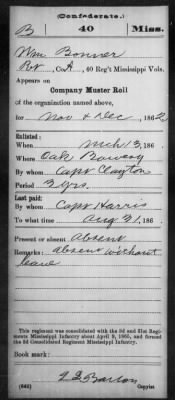 (Confederate.)
B 40 Miss.
Wm Bonner
Pvt, Co. A, 40 Reg't Mississippi Vols.
Appears on
Company Muster Roll
of the organization named above,
for Nov & Dec, 1862
Enlisted:
When Mch 13, 186 .
Where Oak Bowery
By whom Capt Clayton
Period 3 yrs.
Last paid:
By whom Capt Harris
To what time Aug 31, 186 .
Present or absent Absent
Remarks: absent without
leave
This regiment was consolidated with the 3d and 31st Regiments
Mississippi Infantry about April 9, 1865, and formed
the 3d Consolidated Regiment Mississippi Infantry.
Book mark:
(642) Copyist.